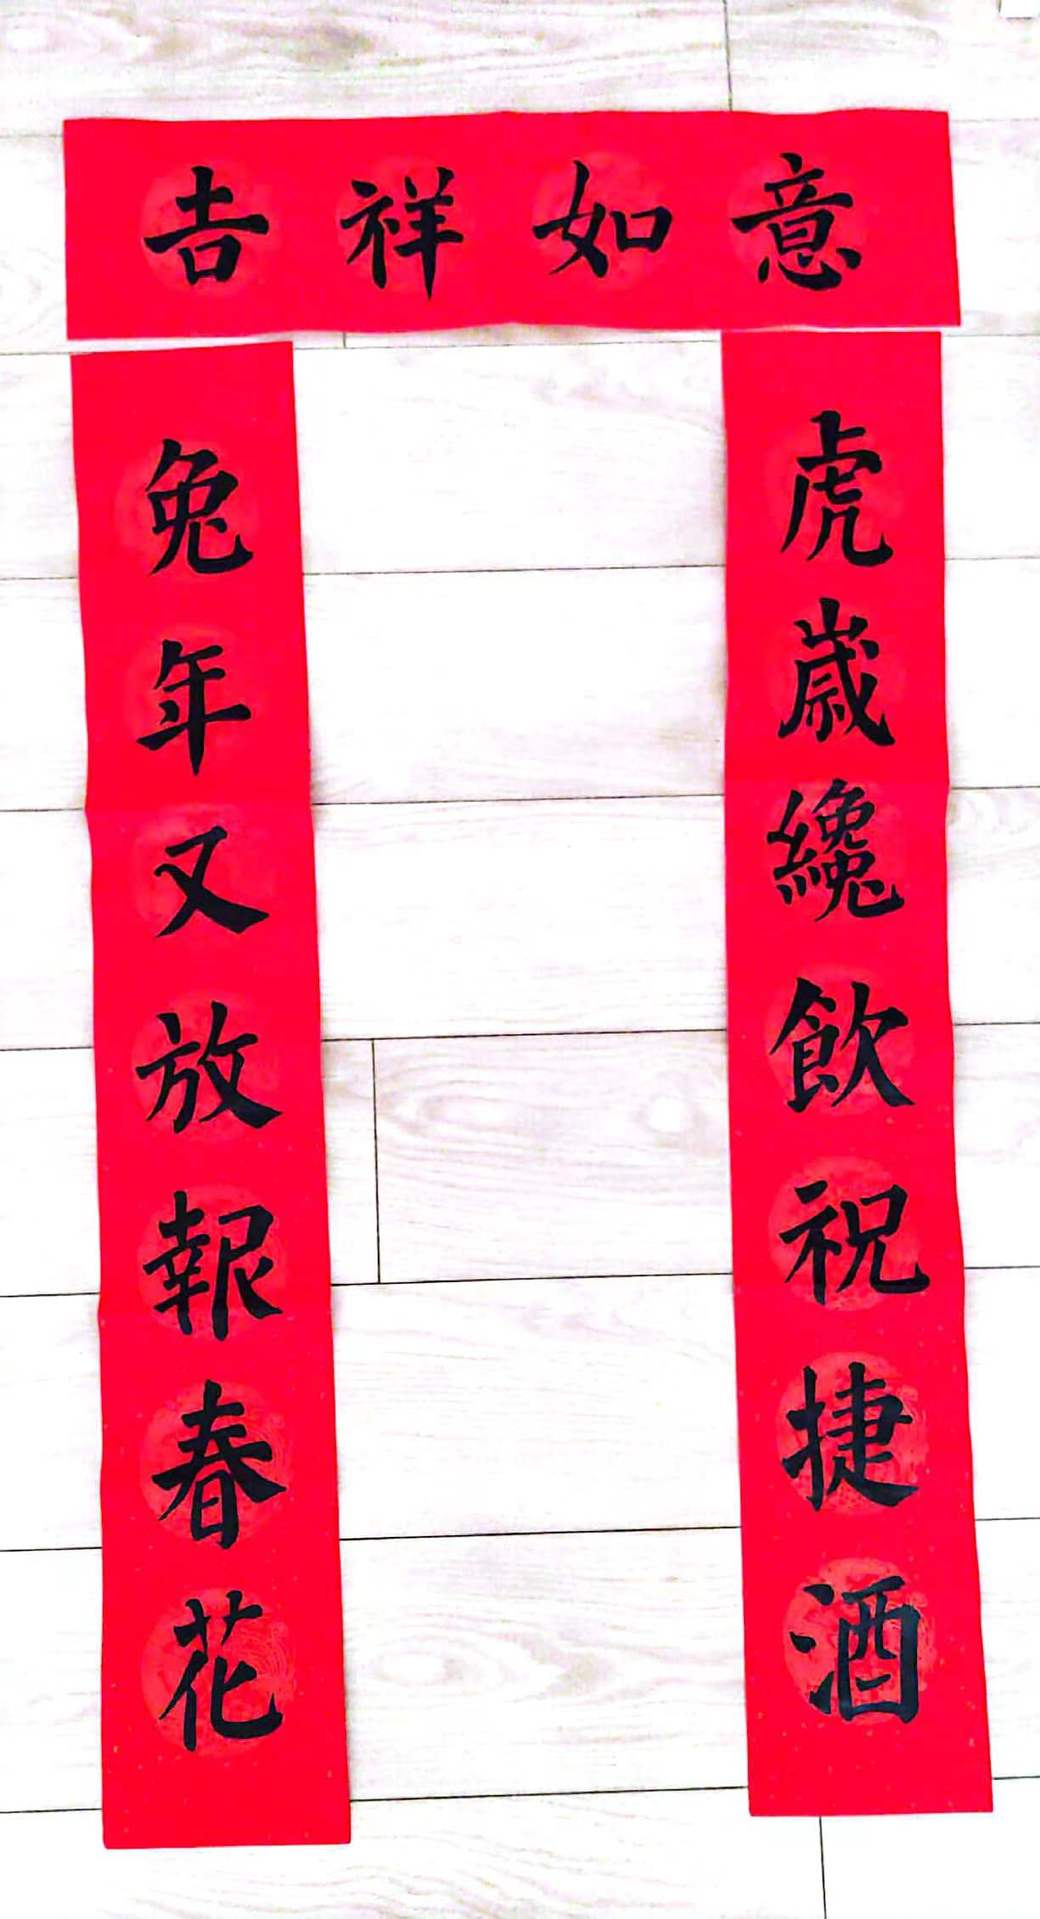 吉祥如意
虎歲纔飲祝捷酒
兔年又放報春花